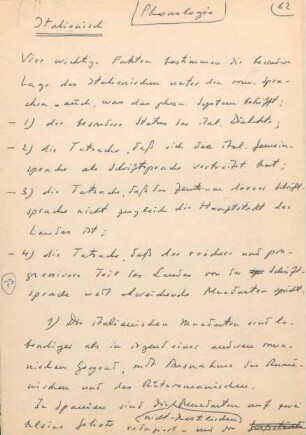 Italienisch [Phonologie] 62
Vier wichtige Fakten bestimmen die besondere
Lage des Italienischen unter den rom. Spra-
chen auch, was das phon. System betrifft:
- 1) der besondere Status der ital. Dialekte;
- 2) die Tatsache, daß sich die ital. Gemein-
sprache als Schriftsprache verbreitet hat;
- 3) die Tatsache, daß das Zentrum dieser Schrift-
sprache nicht zugleich die Hauptstadt des
Landes ist;
- 4) die Tatsache, daß der reichere und pro-
gressivere Teil des Landes von der Schrift-
sprache weit abweichende Mundarten spricht.
1) Die italienischen Mundarten sind le-
bendiger als in irgend einer anderen roma-
nischen Gegend, mit Ausnahme des Rumä-
nischen und des Rätoromanischen.
In Spanien sind die Mundarten auf zwei
(nicht-kastilischen)
kleine Gebiete reduziert - und